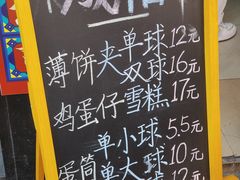 薄饼夹单球12元
双球16元
鸡蛋仔雪糕17元
单小球5.5元
蛋筒单大球10元
12元